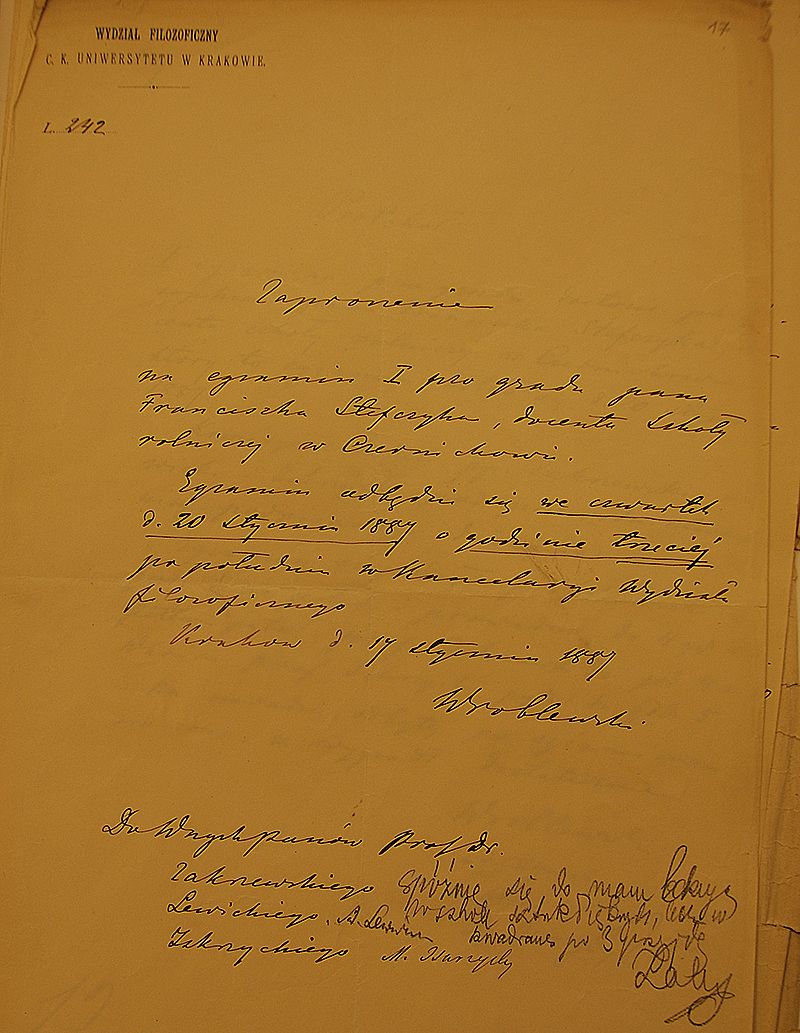 17
WYDZIAŁ FILOZOFICZNY
C. K. UNIWERSYTETU W KRAKOWIE.
L. 242
Zaproszenie
na egzamin I pro gradu pana
Franciszka Stefczyka, docenta szkoły
rolniczej w Czernichowie.
Egzamin odbędzie się we czwartek
d. 20 stycznia 1887 o godzinie trzeciej
po południu w Kancelaryi Wydziału
filozoficznego
Kraków d. 17 stycznia 1887
Wróblewski
Do Wnych Panów Prof Dr.
Zakrzewskiego
Spóźnię się bo mam
w szkole sztuk pięknych, lecz w
Lewickiego, A. Lewicki
kwadrans po 3 przyjdę